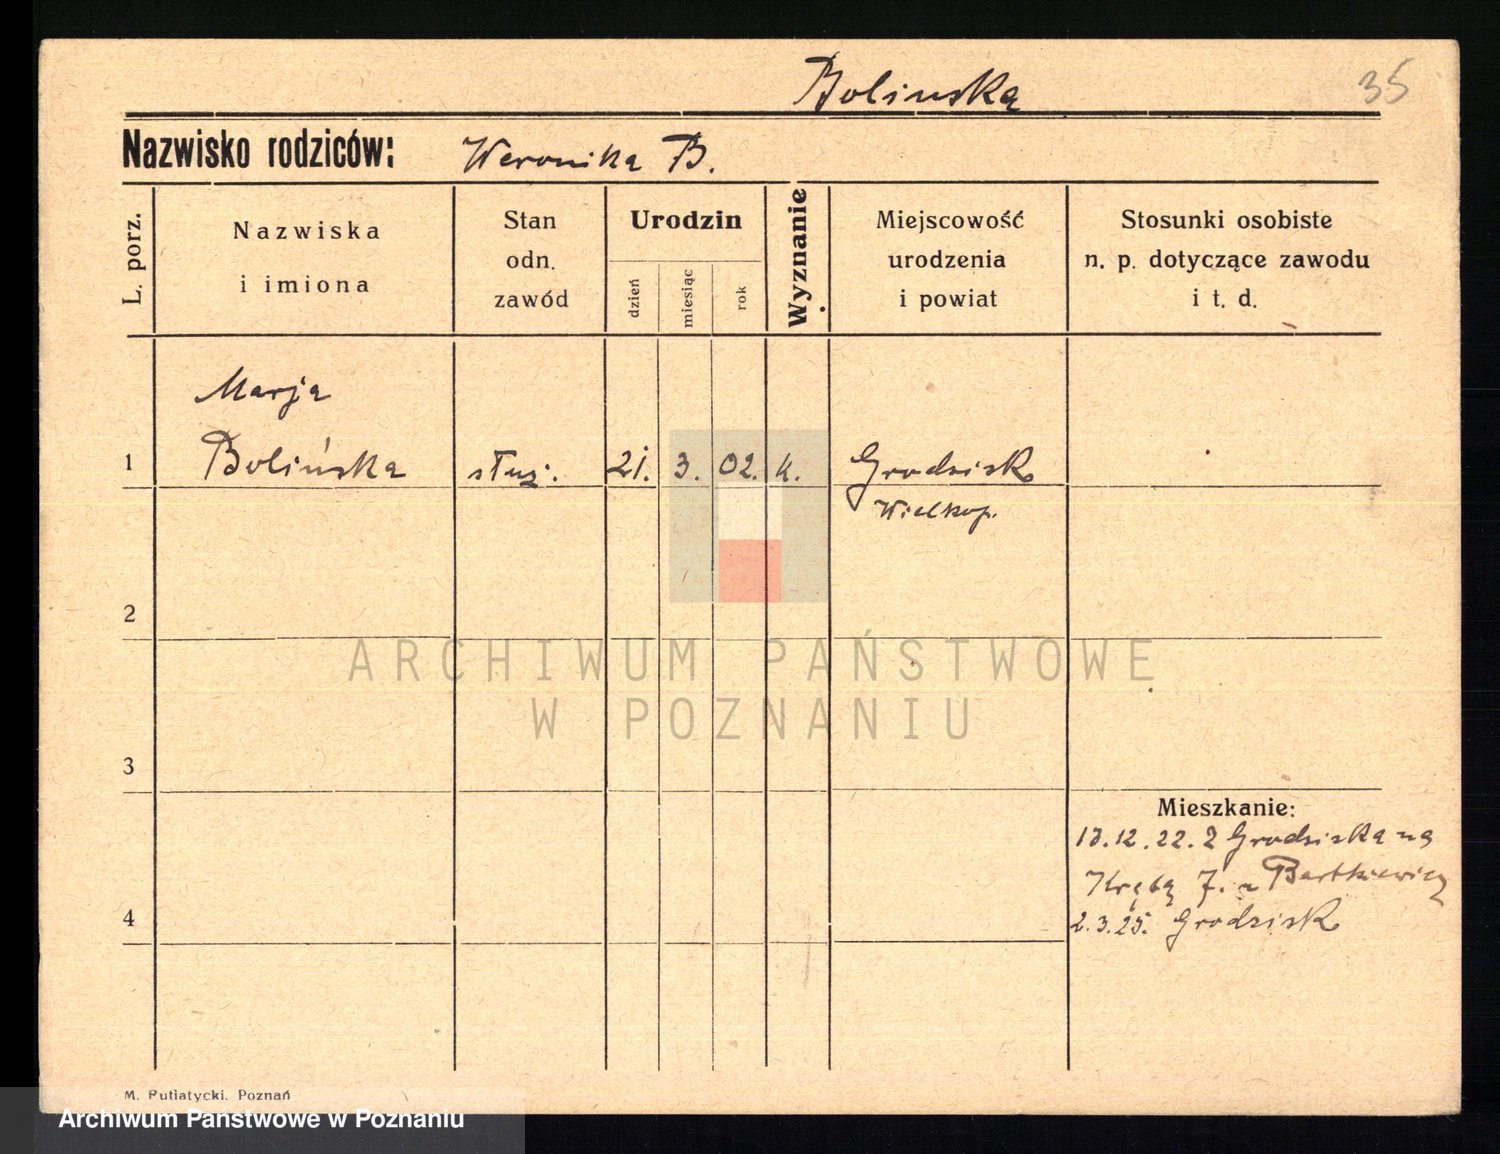 Bolinska
35
Nazwisko rodziców: Weronika B.
L. porz.
Nazwiska
i imiona
Stan
odn.
zawód
Urodzin
dzień
miesiąc
rok
Wyznanie
Miejscowość
urodzenia
i powiat
Stosunki osobiste
n. p. dotyczące zawodu
i t. d.
Marja
1 Bolińska służ. 21. 3. 02. k. Grodzisk
Wielkop.
2
ARCHIWUM PAŃSTWOWE
W POZNANIU
3
Mieszkanie:
13.12.22. Z Grodziska na
7. Bartkiewicz
4
2.3.25. Grodzisk
M. Putiatycki. Poznań
Archiwum Państwowe w Poznaniu